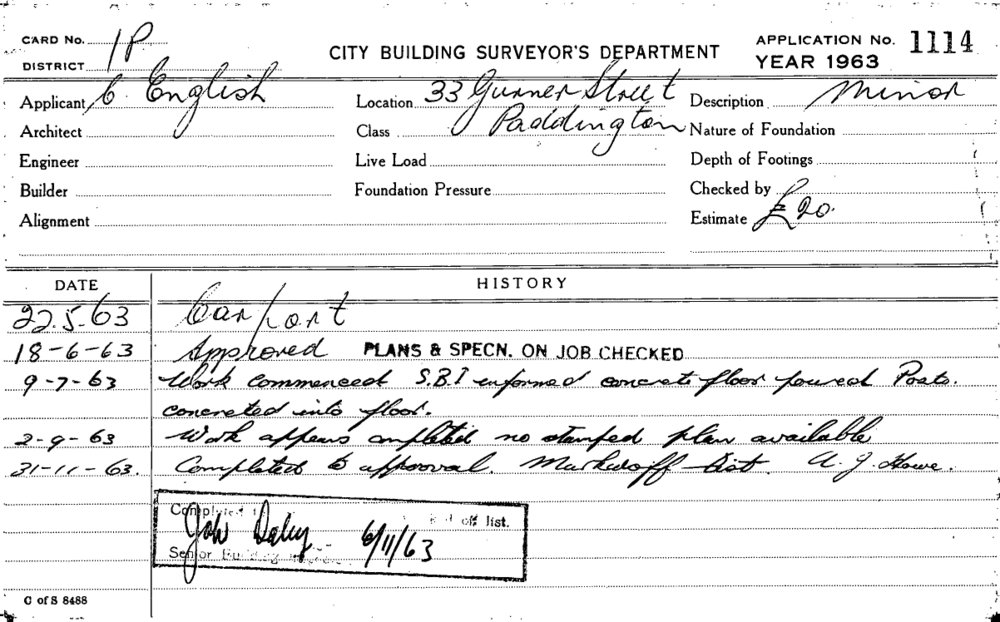 CARD No. 1P
DISTRICT
CITY BUILDING SURVEYOR'S DEPARTMENT
APPLICATION No. 1114
YEAR 1963
Applicant C. English
Location 33 Gurner Street
Description Minor
Architect
Class Paddington
Nature of Foundation
Engineer
Live Load
Depth of Footings
Builder
Foundation Pressure
Checked by
Alignment
Estimate £20.
DATE HISTORY
22.5.63 Carport
18-6-63 Approved PLANS & SPECN. ON JOB CHECKED
9-7-63 Work commenced S.B.I informed concrete floor poured Posts.
concreted into floor.
2-9-63 Work appears completed no stamped plan available
31-11-63. Completed to approval. Mark off list. A. J. Howe.
Completed off list.
6/11/63
Senior Building
C of S 8488